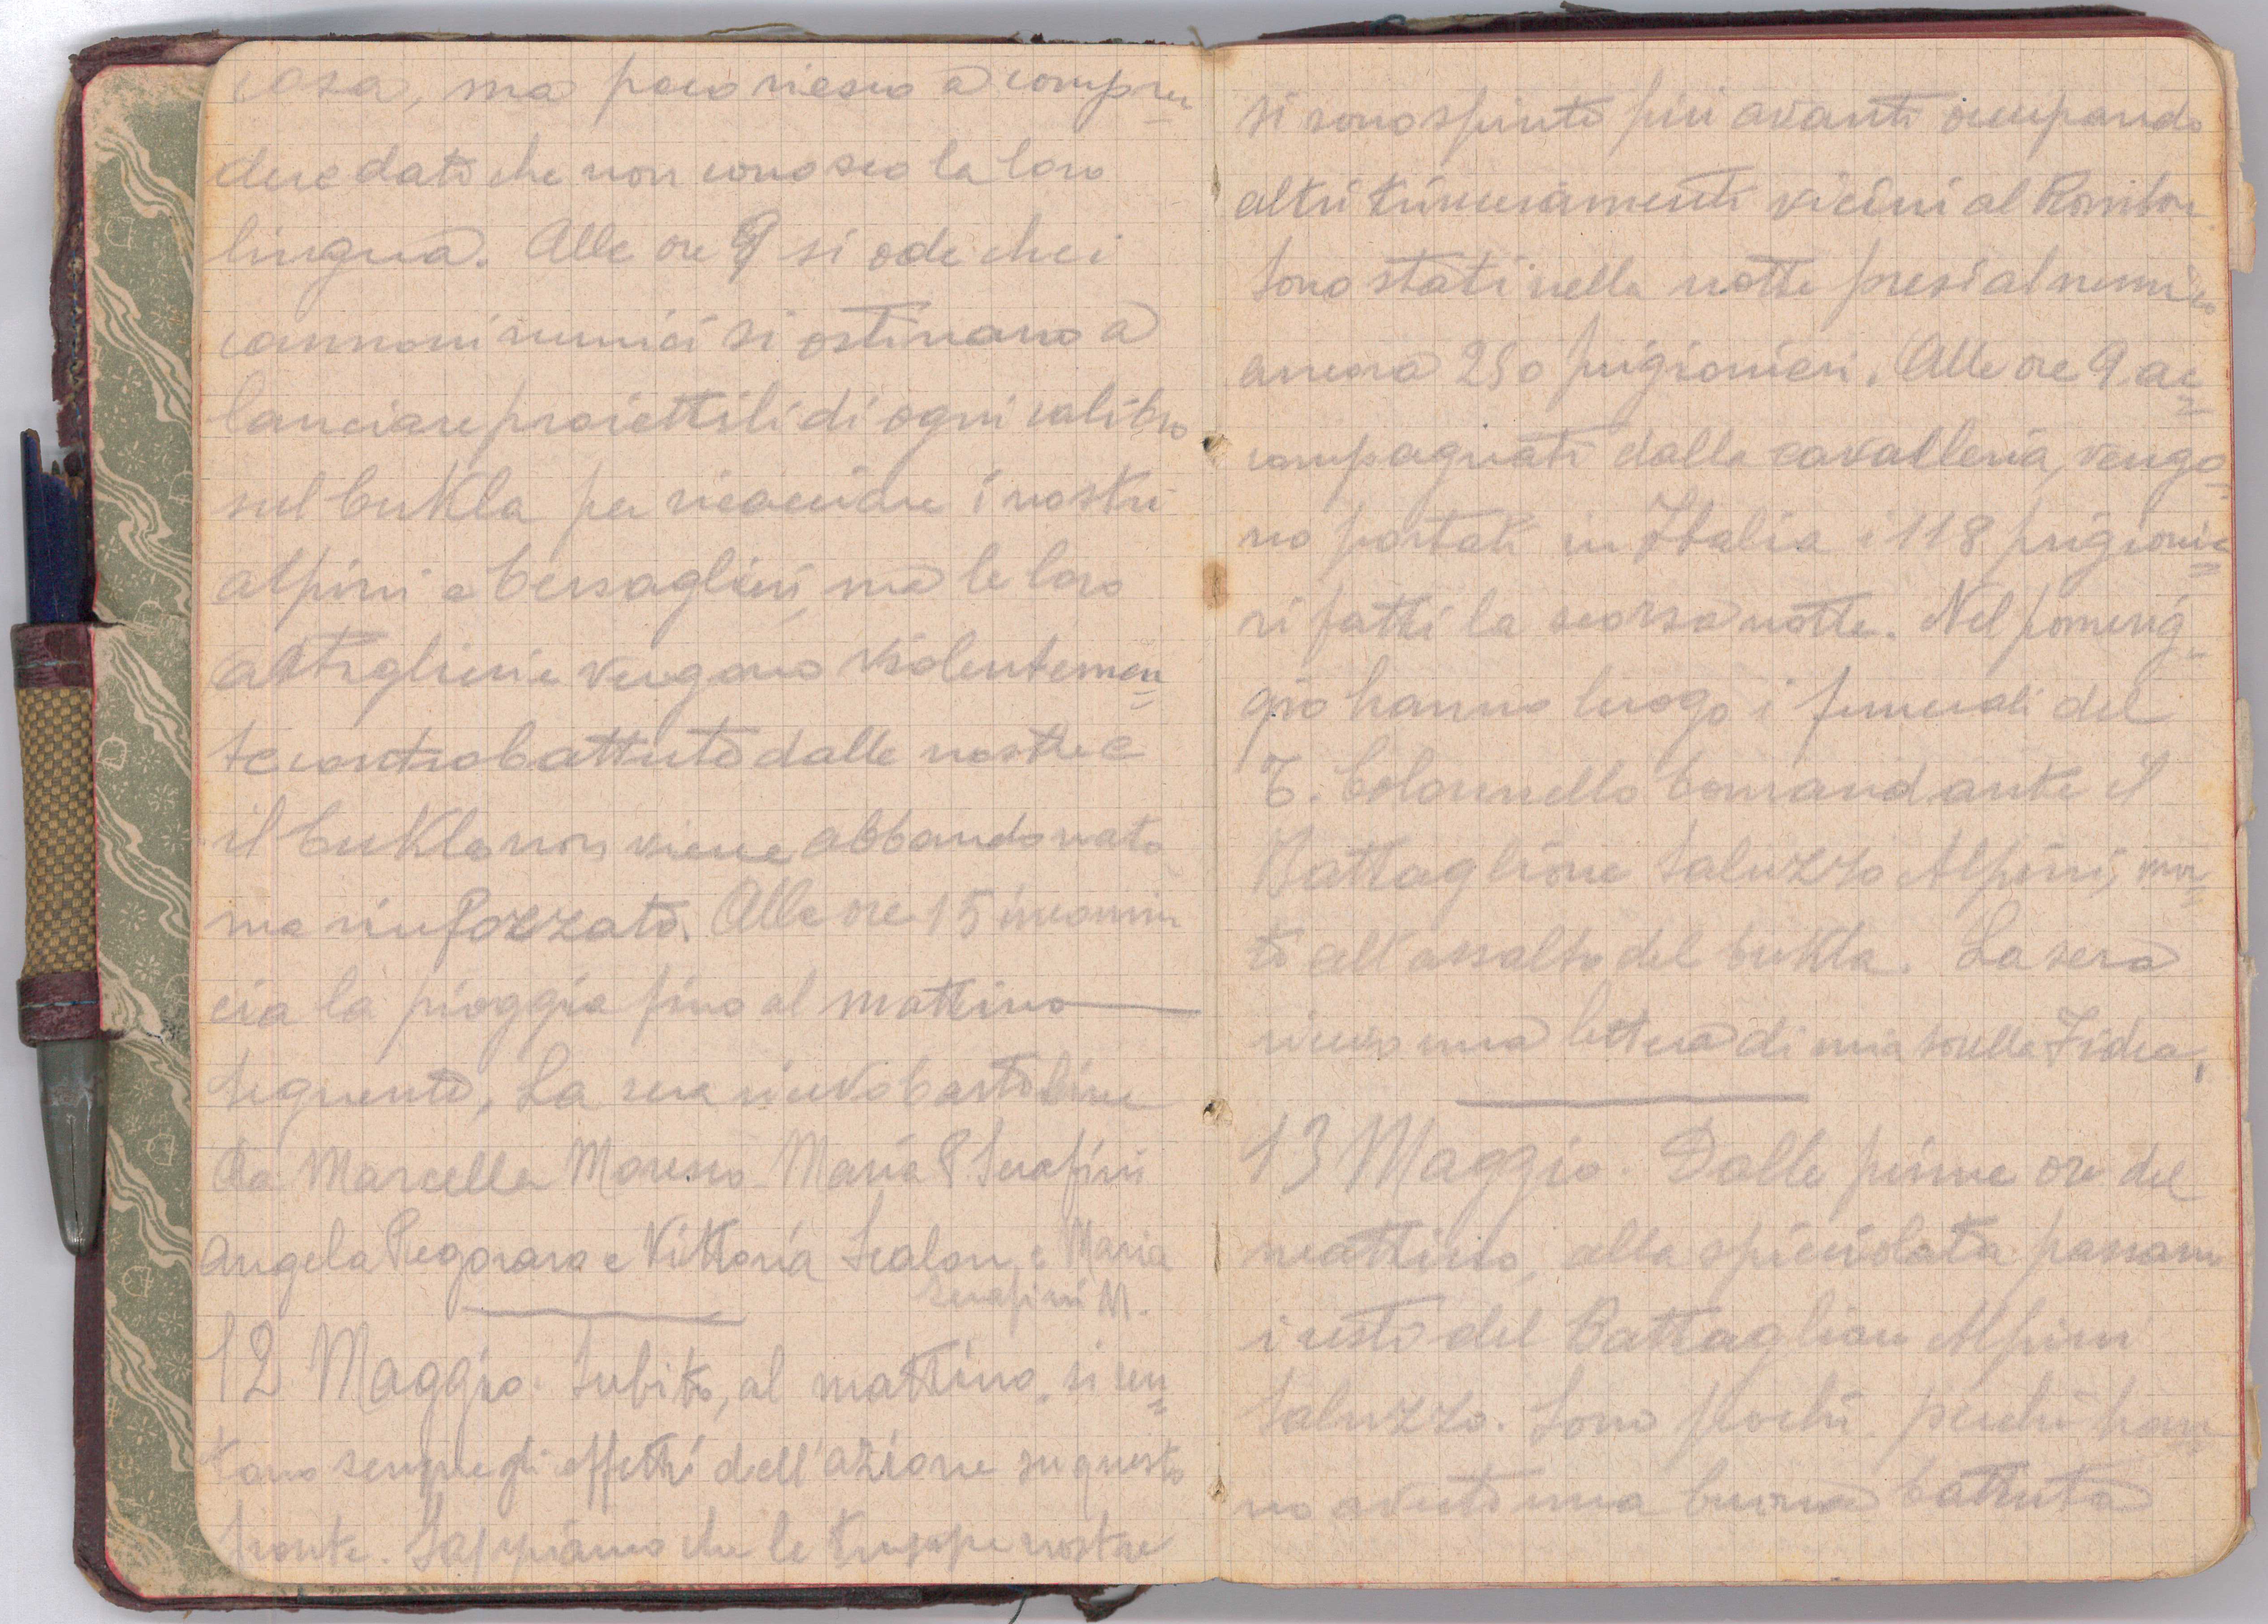 cosa, ma poco riesco a compren
dere dato che non conosco la loro
lingua. Alle ore 9 si ode che i
cannoni nemici si ostinano a
lanciare proiettili di ogni calibro
sul cukla per ricacciare i nostri
alpini e bersaglieri, ma le loro
artiglierie vengono violentemen
te controbattute dalle nostre e
il cukla non viene abbandonato
ma rinforzato. Alle ore 15 incomin
cia la pioggia fino al mattino
seguente. La sera ricevo cartoline
da Marcella Moresco Maria P. Serafini
Angela Pegoraro e Vittoria Scalon e Maria
Serafini M.
12 Maggio. Subito, al mattino, si sen
tono sempre gli effetti dell'azione su questo
fronte. Sappiamo che le truppe nostre
si sono spinte più avanti occupando
altri trinceramenti vicini al Rombon
Sono stati nella notte presi al nemico
ancora 250 prigionieri. Alle ore 9 ac
compagnati dalla cavalleria, vengo
no portati in Italia i 118 prigionie
ri fatti la scorsa notte. Nel pomerig
gio hanno luogo i funerali del
T. Colonnello Comandante il
Battaglione Saluzzo Alpini, mor
to all'assalto del cukla. La sera
ricevo una lettera di mia sorella Fidea.
13 Maggio. Dalle prime ore del
mattino, alla spicciolata passano
i resti del Battaglion Alpini
Saluzzo. Sono pochi perché han
no avuto una buona battuta